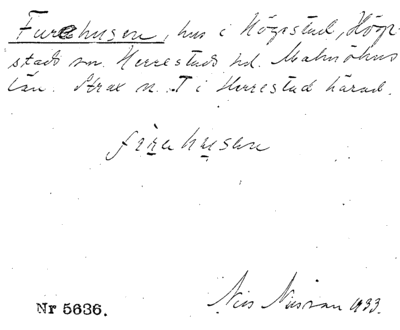 Furehusen, hus i Högestad, Höge-
stads sn. Herrestads hd. Malmöhus
län. Strax n. T i Herrestad härad.
furehusen
Nils 1933.
Nr 5636.